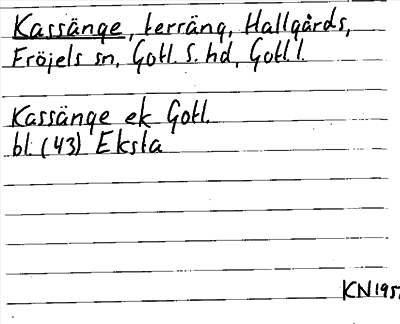 Kassänge, terräng, Hallgårds,
Fröjels sn, Gotl. S. hd, Gotl. l.
Kassänge ek Gotl.
bl. (43) Eksta
KN 195